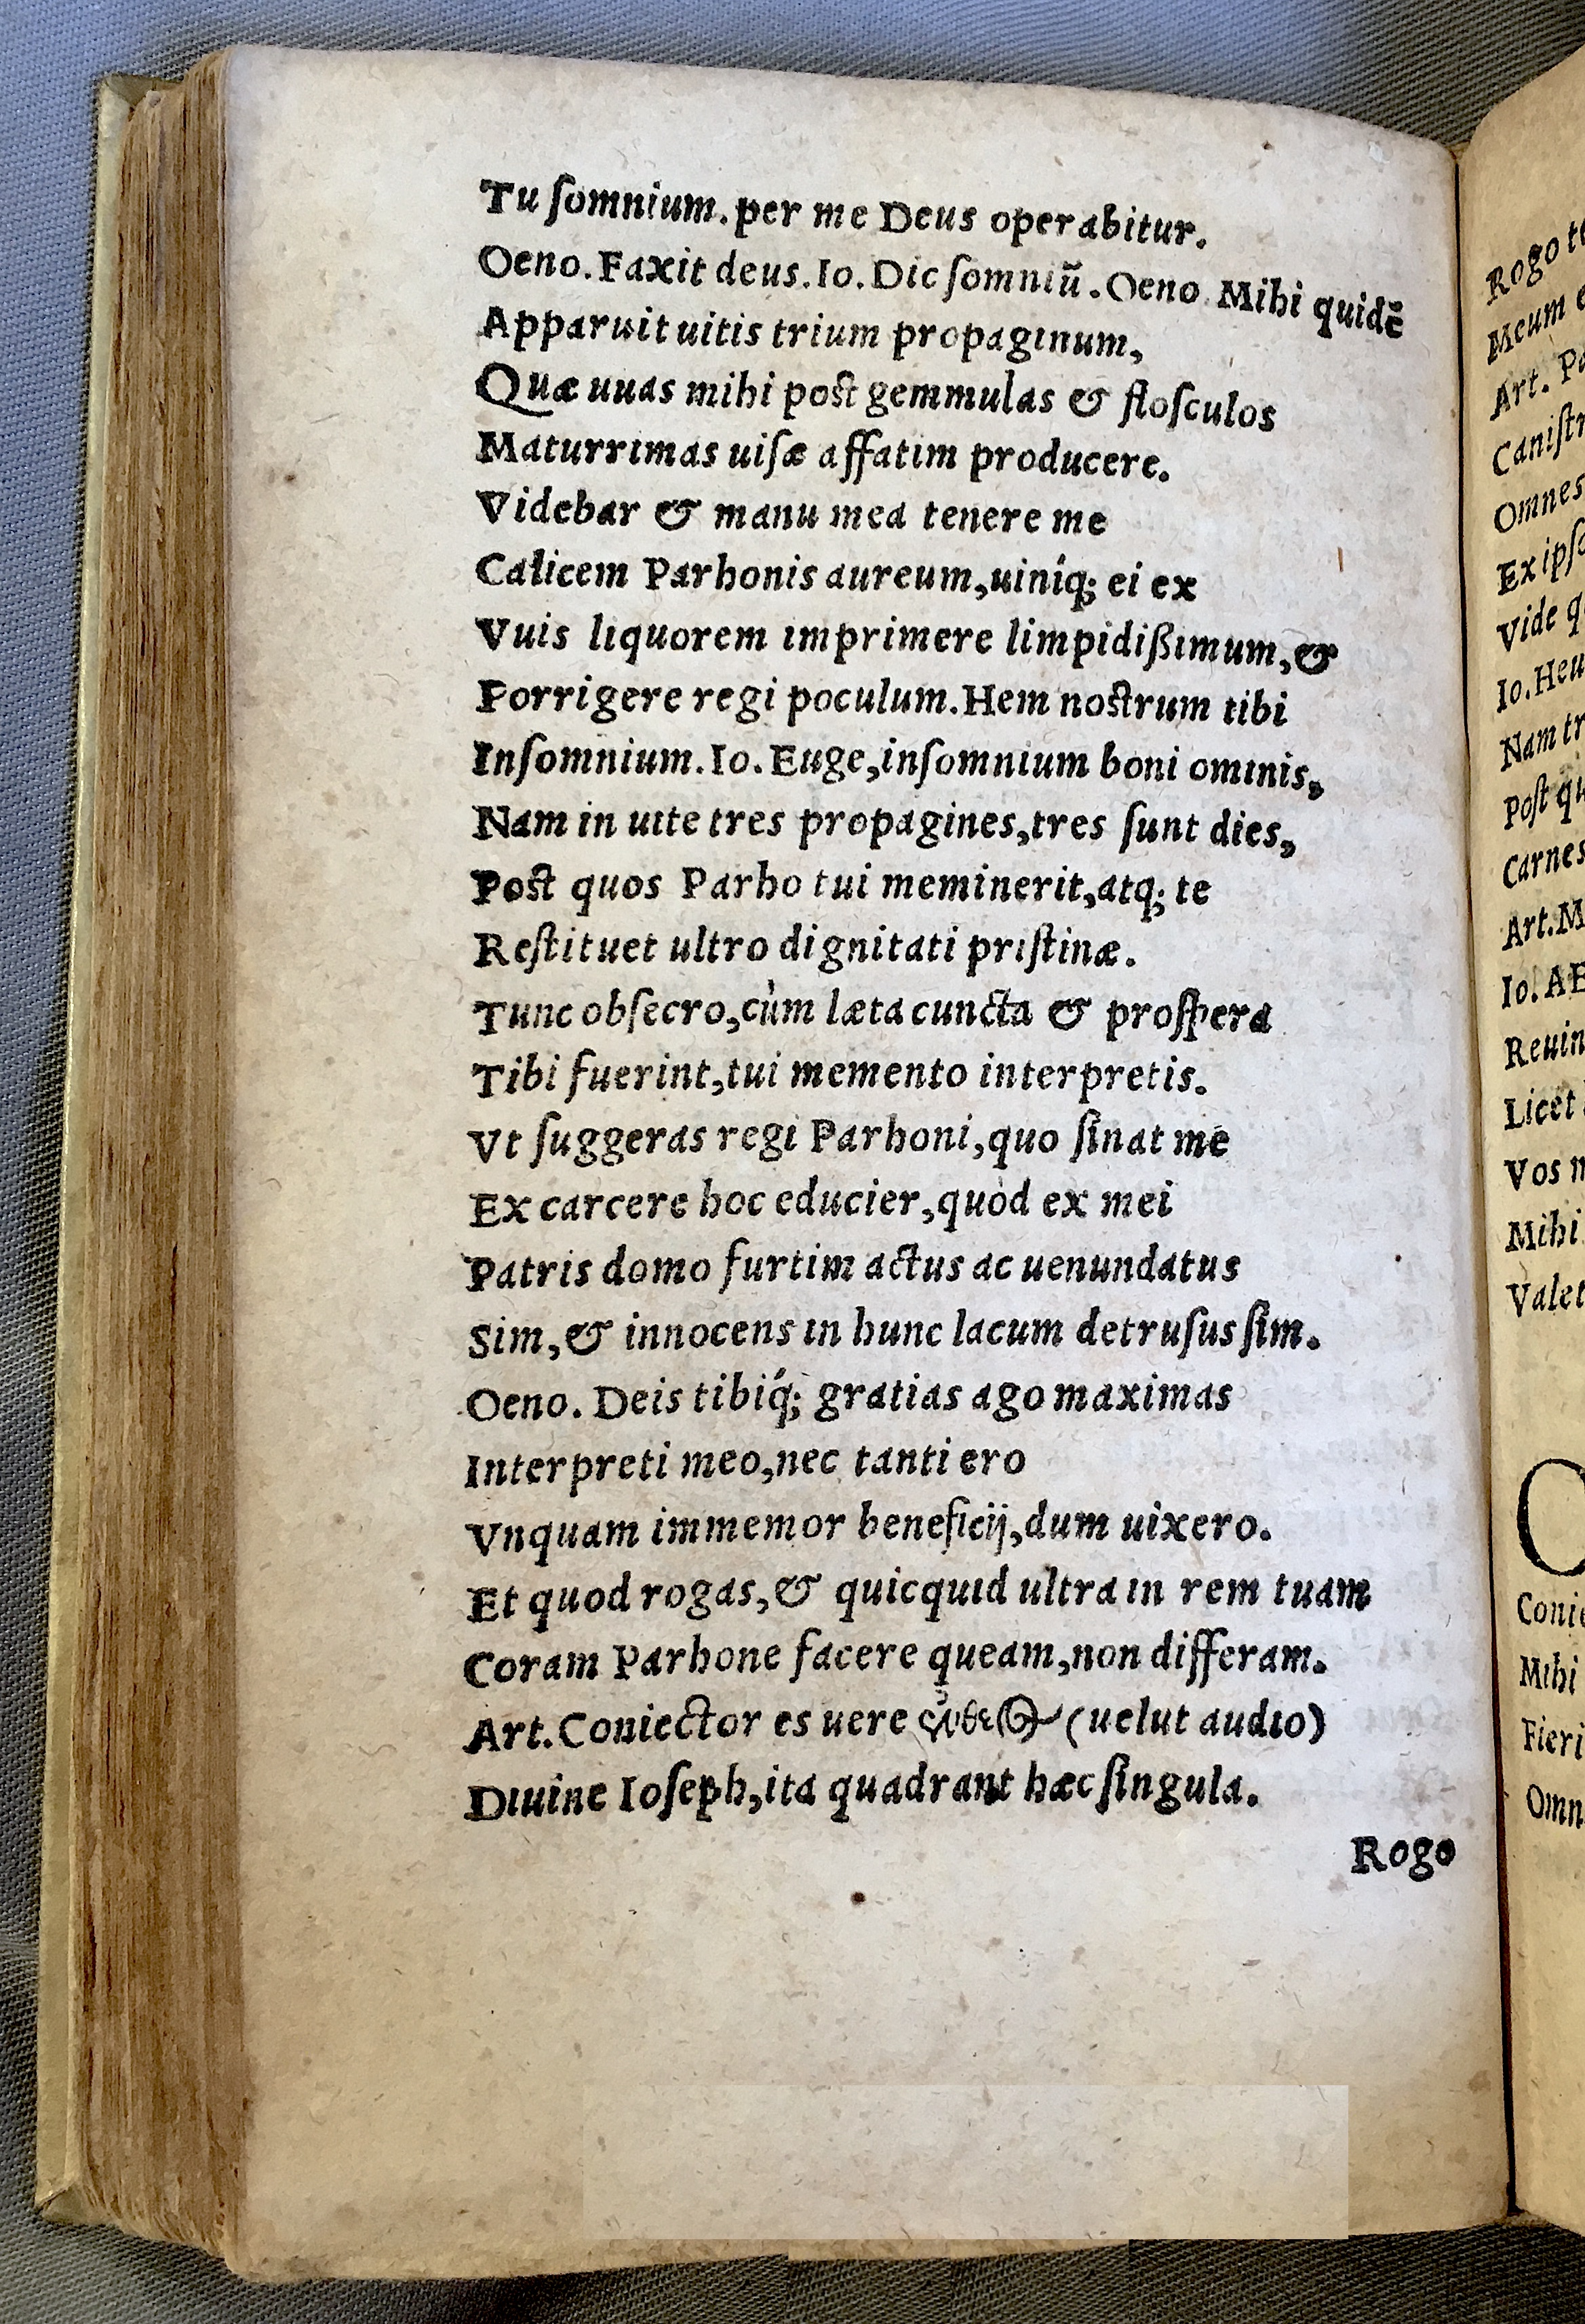 Tu ſomnium. per me Deus operabitur.
Oeno. Faxit deus. Io. Dic ſomniũ. Oeno. Mihi quidẽ
Apparuit uitis trium propaginum,
Quæ uuas mihi post gemmulas & floſculos
Maturrimas uiſæ affatim producere.
Videbar & manu mea tenere me
Calicem Parhonis aureum, uiniq́; ei ex
Vuis liquorem imprimere limpidißimum, &
Porrigere regi poculum. Hem nostrum tibi
Inſomnium. Io. Euge, inſomnium boni ominis,
Nam in uite tres propagines, tres ſunt dies,
Post quos Parho tui meminerit, atq; te
Reſtituet ultro dignitati priſtinæ.
Tunc obſecro, cùm læta cuncta & proſpera
Tibi fuerint, tui memento interpretis.
Vt ſuggeras regi Parhoni, quo ſinat me
Ex carcere hoc educier, quòd ex mei
Patris domo furtim actus ac uenundatus
Sim, & innocens in hunc lacum detruſus ſim.
Oeno. Deis tibiq́; gratias ago maximas
Interpreti meo, nec tanti ero
Vnquam immemor beneficij, dum uixero.
Et quod rogas, & quicquid ultra in rem tuam
Coram Parhone facere queam, non differam.
Art. Coniector es uere (uelut audio)
Diuine Ioſeph, ita quadrant hæc ſingula.
Rogo
Rogo
Meum
Art.
Omnes
Ex
Vide
Io. Heu
Nam
Poſt
Carnes
Art.
Io.
Licet
Vos
Mihi
Mihi